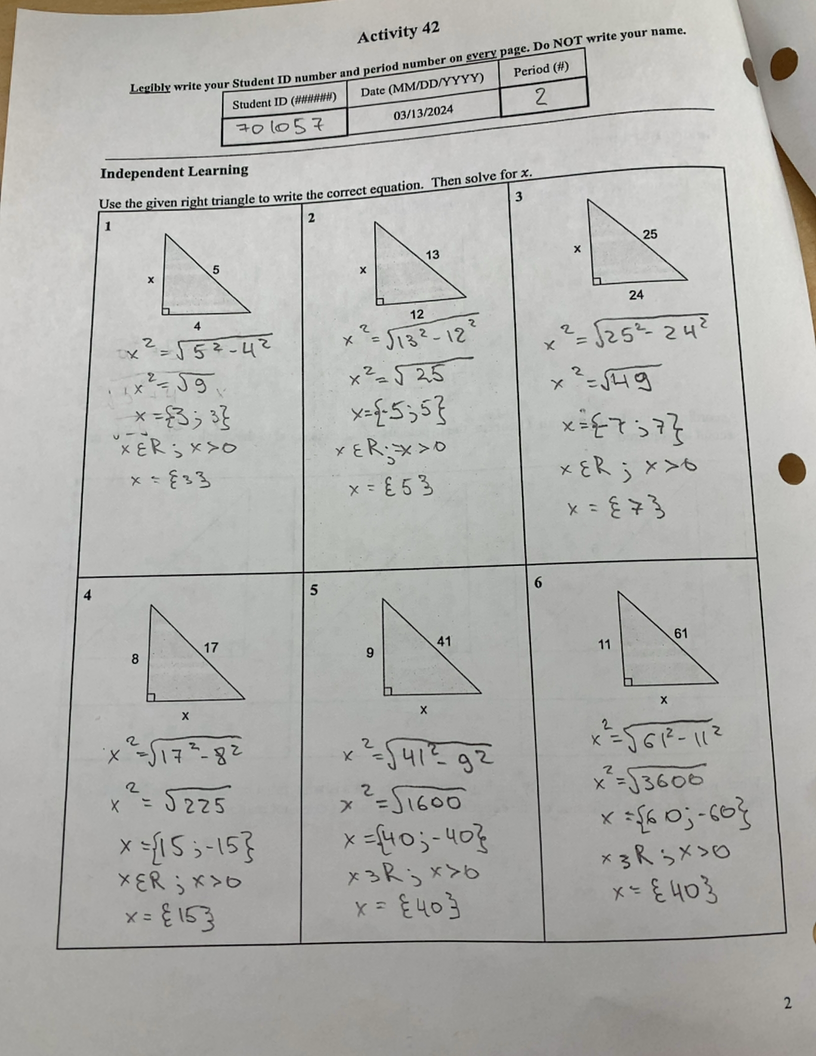 Activity 42
Legibly write your Student ID number and period number on every page. Do NOT write your name.
Student ID (######) Date (MM/DD/YYYY) Period (#)
701057 03/13/2024 2
Independent Learning
Use the given right triangle to write the correct equation. Then solve for x.
1
x
5
4
x² = √5² - 4²
x² = √9
x = {3; 3}
x ε R ; x > 0
x = {3}
2
x
13
12
x² = √13² - 12²
x² = √25
x = {-5; 5}
x ε R ; x > 0
x = {5}
3
x
25
24
x² = √25² - 24²
x² = √49
x = {-7; 7}
x ε R ; x > 0
x = {7}
4
8
17
x
x² = √17² - 8²
x² = √225
x = {15; -15}
x ε R ; x > 0
x = {15}
5
9
41
x
x² = √41² - 9²
x² = √1600
x = {40; -40}
x 3 R ; x > 0
x = {40}
6
11
61
x
x² = √61² - 11²
x² = √3600
x = {60; -60}
x 3 R ; x > 0
x = {40}
2